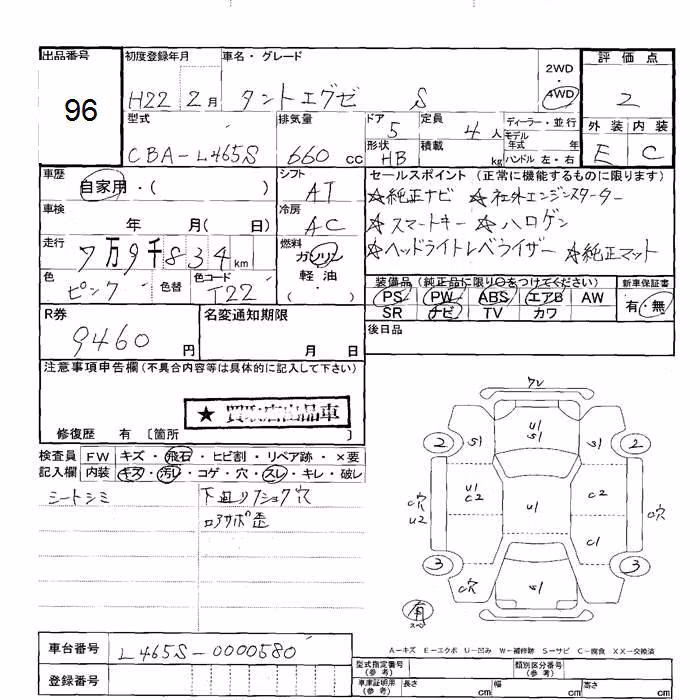 出品番号 初度登録年月 車名・グレード 2WD ・ 4WD 評価点
96 H22 2月 タントエグゼ S 2
型式 排気量 ドア 定員 ディーラー・並行 外装 内装
CBA-L465S 660cc 5 4人 モデル年式 年 E C
形状 HB 積載 kg ハンドル 左・右
車歴 シフト セールスポイント (正常に機能するものに限ります)
自家用・( ) AT ☆純正ナビ ☆社外エンジンスターター
車検 冷房 ☆スマートキー ☆ハロゲン
年 月( 日) AC ☆ヘッドライトレベライザー ☆純正マット
走行 燃料
7万9千834km ガソリン
色 色替 色コード 軽油
ピンク T22 ( ・ )
装備品 (純正品に限り○をつけてください) 新車保証書
PS PW ABS エアB AW 有・無
SR ナビ TV カワ
R券 名変通知期限 後日品
9460円 月 日
注意事項申告欄(不具合内容等は具体的に記入して下さい)
★ 買取店出品車
修復歴 有 〔箇所 〕
検査員 FW キズ・飛石・ヒビ割・リペア跡・×要
記入欄 内装 キズ・汚レ・コゲ・穴・スレ・キレ・破レ
シートシミ 下廻リ
ロアサポ歪
ワレ
U1
S1
2 S1 S1 2
U1
C2 U1 C2
C穴
U2 C穴
C1
3 3
C穴 S1
有
スペア
車台番号 L465S-0000580
登録番号
A-キズ E-エクボ U-凹み W-補修跡 S-サビ C-腐食 XX-交換済
型式指定番号(参考) 類別区分番号(参考)
車庫証明用(参考) 長さ cm 幅 cm 高さ cm